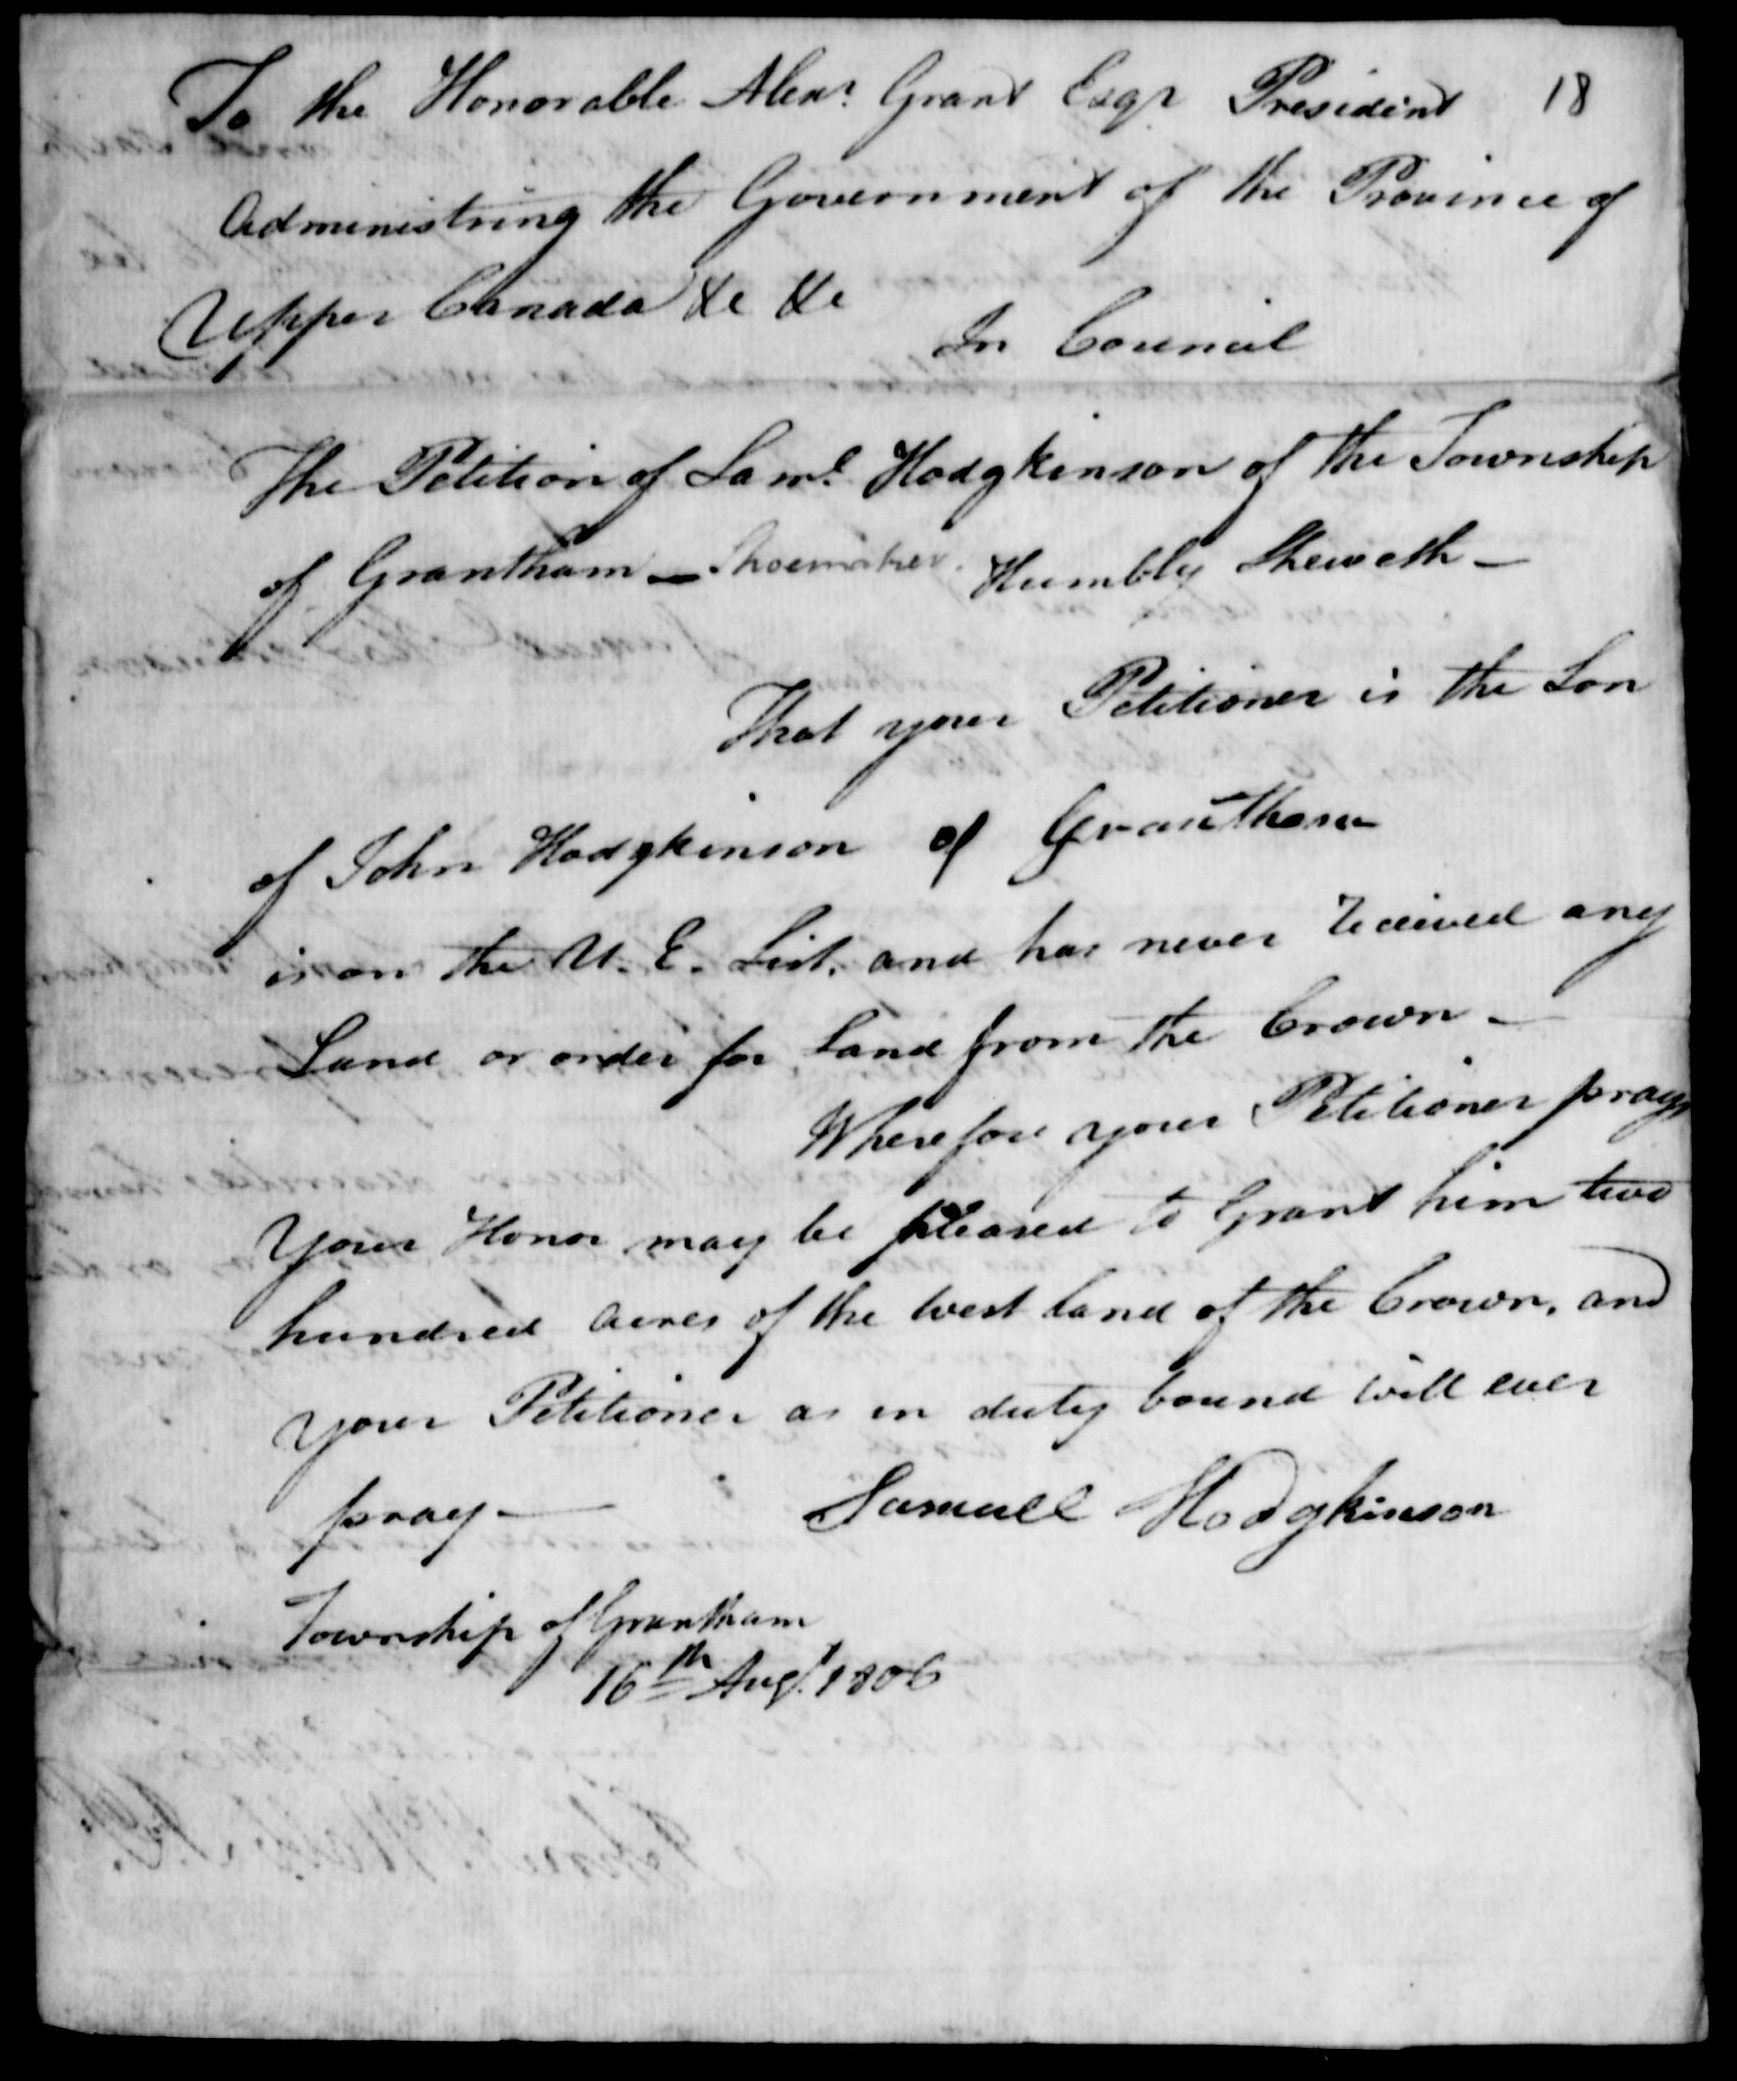 To the Honorable Alexr. Grant Esqr President 18
Administring the Government of the Province of
Upper Canada &c &c
In Council
The Petition of Saml. Hodgkinson of the Township
of Grantham — Shoemaker. Humbly Sheweth —
That your Petitioner is the Son
of John Hodgkinson of Grantham
is on the U. E. List, and has never received any
Land or order for Land from the Crown —
Wherefore your Petitioner prays
Your Honor may be pleased to Grant him two
hundred acres of the wast land of the Crown, and
your Petitioner as in duty bound will ever
pray — Samuel Hodgkinson
Township of Grantham
16th Augt. 1806